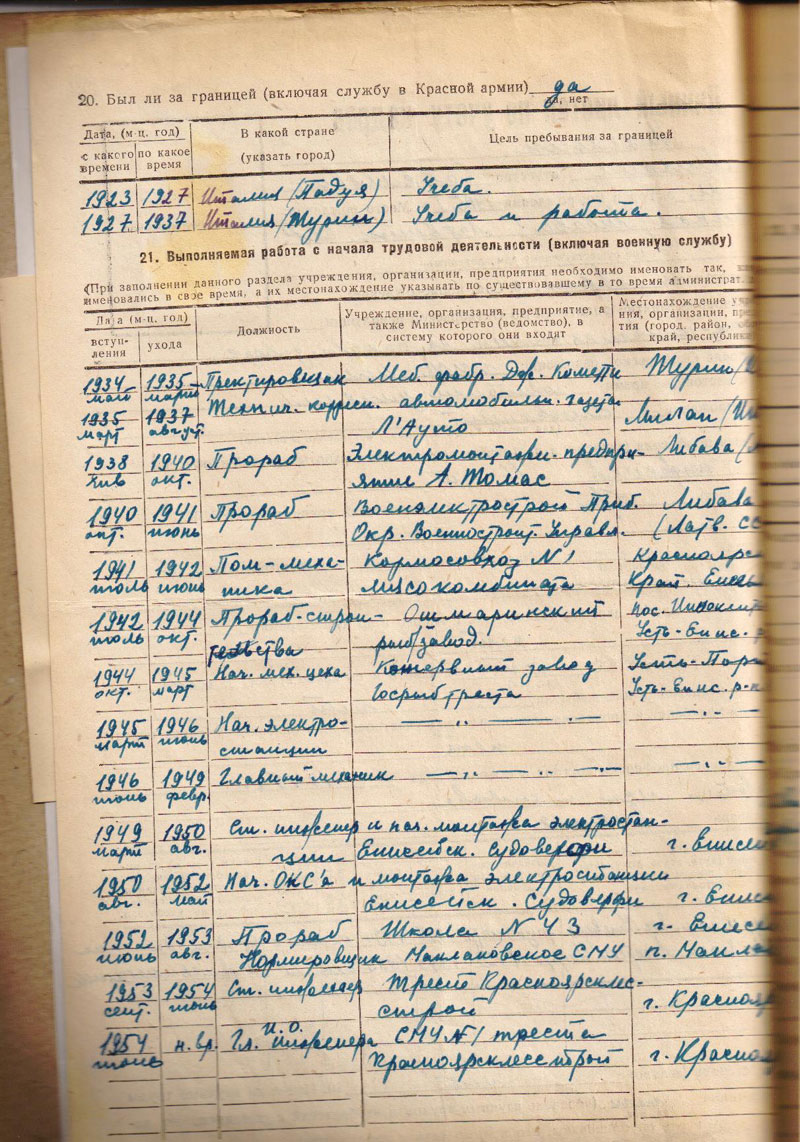 20. Был ли за границей (включая службу в Красной армии) да
да, нет
Дата, (м-ц. год)
В какой стране
(указать город)
Цель пребывания за границей
с какого времени
по какое время
1923 1927 Италия (Падуя) Учеба.
1927 1937 Италия (Турин) Учеба и работа.
21. Выполняемая работа с начала трудовой деятельности (включая военную службу)
(При заполнении данного раздела учреждения, организации, предприятия необходимо именовать так,
именовались в свое время, а их местонахождение указывать по существовавшему в то время администрат.
Дата (м-ц. год)
вступления
ухода
Должность
Учреждение, организация, предприятие, а
также Министерство (ведомство), в
систему которого они входят
Местонахождение
ния, организации,
тия (город, район,
край, республика
1934 1935 Пректировщик Меб. фабр. Дж. Турин
май март Технич. корресп. автомобильн. газета
1935 1937 Л'Ауто Милан
март август
1938 1940 Прораб Электромонтажн. предпри- Либава
янв окт. ятие А. Томас
1940 1941 Прораб Военэлектрострой Приб. Либава
окт. июнь Окр. Военностроит. Управл. (Латв. СС
1941 1942 Пом-меха- Кормосовхоз N 1 Красноярс
июль июнь ника мясокомбината Край.
1942 1944 Прораб-строи- Ошмаринский пос.
июль окт. тельства рыбзавод. Усть-Енис.
1944 1945 Нач. мех. цеха Консервный завод Усть-Пор
окт. март Госрыбтреста Усть-Енис. р-н
1945 1946 Нач. электро- — „ — — „ —
март июнь станции
1946 1949 Главный механик — „ — „ — — „ —
июнь февр.
1949 1950 Ст. инженер и нач. монтажа электростан-
март авг. ции Енисейск. Судоверфи г. Енисе
1950 1952 Нач. ОКС'а и монтажа электростанции
авг. май Енисейск. Судоверфи г. Енис
1952 1953 Прораб Школа N 43 г. Енисе
июнь авг. Нормировщик Маклаковское СМУ п. Макла
1953 1954 Ст. инженер Трест Красноярсклес-
сент. июнь строй г. Красноя
1954 н. вр. Гл. и.о. инженера СМУ N 1 треста
июнь Красноярсклесстрой г. Красноя